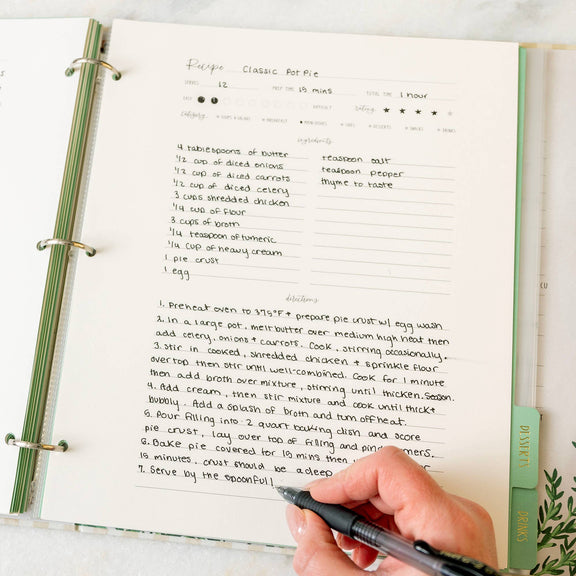 Recipe Classic Pot Pie
SERVES 12 PREP TIME 15 mins TOTAL TIME 1 hour
EASY DIFFICULT rating
category SOUPS & SALADS BREAKFAST MAIN DISHES SIDES DESSERTS SNACKS DRINKS
ingredients
4 tablespoons of butter
1/2 cup of diced onions
1/2 cup of diced carrots
1/2 cup of diced celery
3 cups shredded chicken
1/4 cup of flour
3 cups of broth
1/4 teaspoon of tumeric
1/4 cup of heavy cream
1 pie crust
1 egg
teaspoon salt
teaspoon pepper
thyme to taste
directions
1. Preheat oven to 375°F + prepare pie crust w/ egg wash
2. In a large pot, melt butter over medium high heat then
add celery, onions + carrots. Cook, stirring occasionally.
3. Stir in cooked, shredded chicken + sprinkle flour
over top then stir until well-combined. Cook for 1 minute
then add broth over mixture, stirring until thicken. Season.
4. Add cream, then stir mixture and cook until thick +
bubbly. Add a splash of broth and turn off heat.
5. Pour filling into 2 quart baking dish and score
pie crust, lay over top of filling and pin corners.
6. Bake pie covered for 15 mins then for
15 minutes, crust should be a deep
7. Serve by the spoonful!
DESSERTS
DRINKS